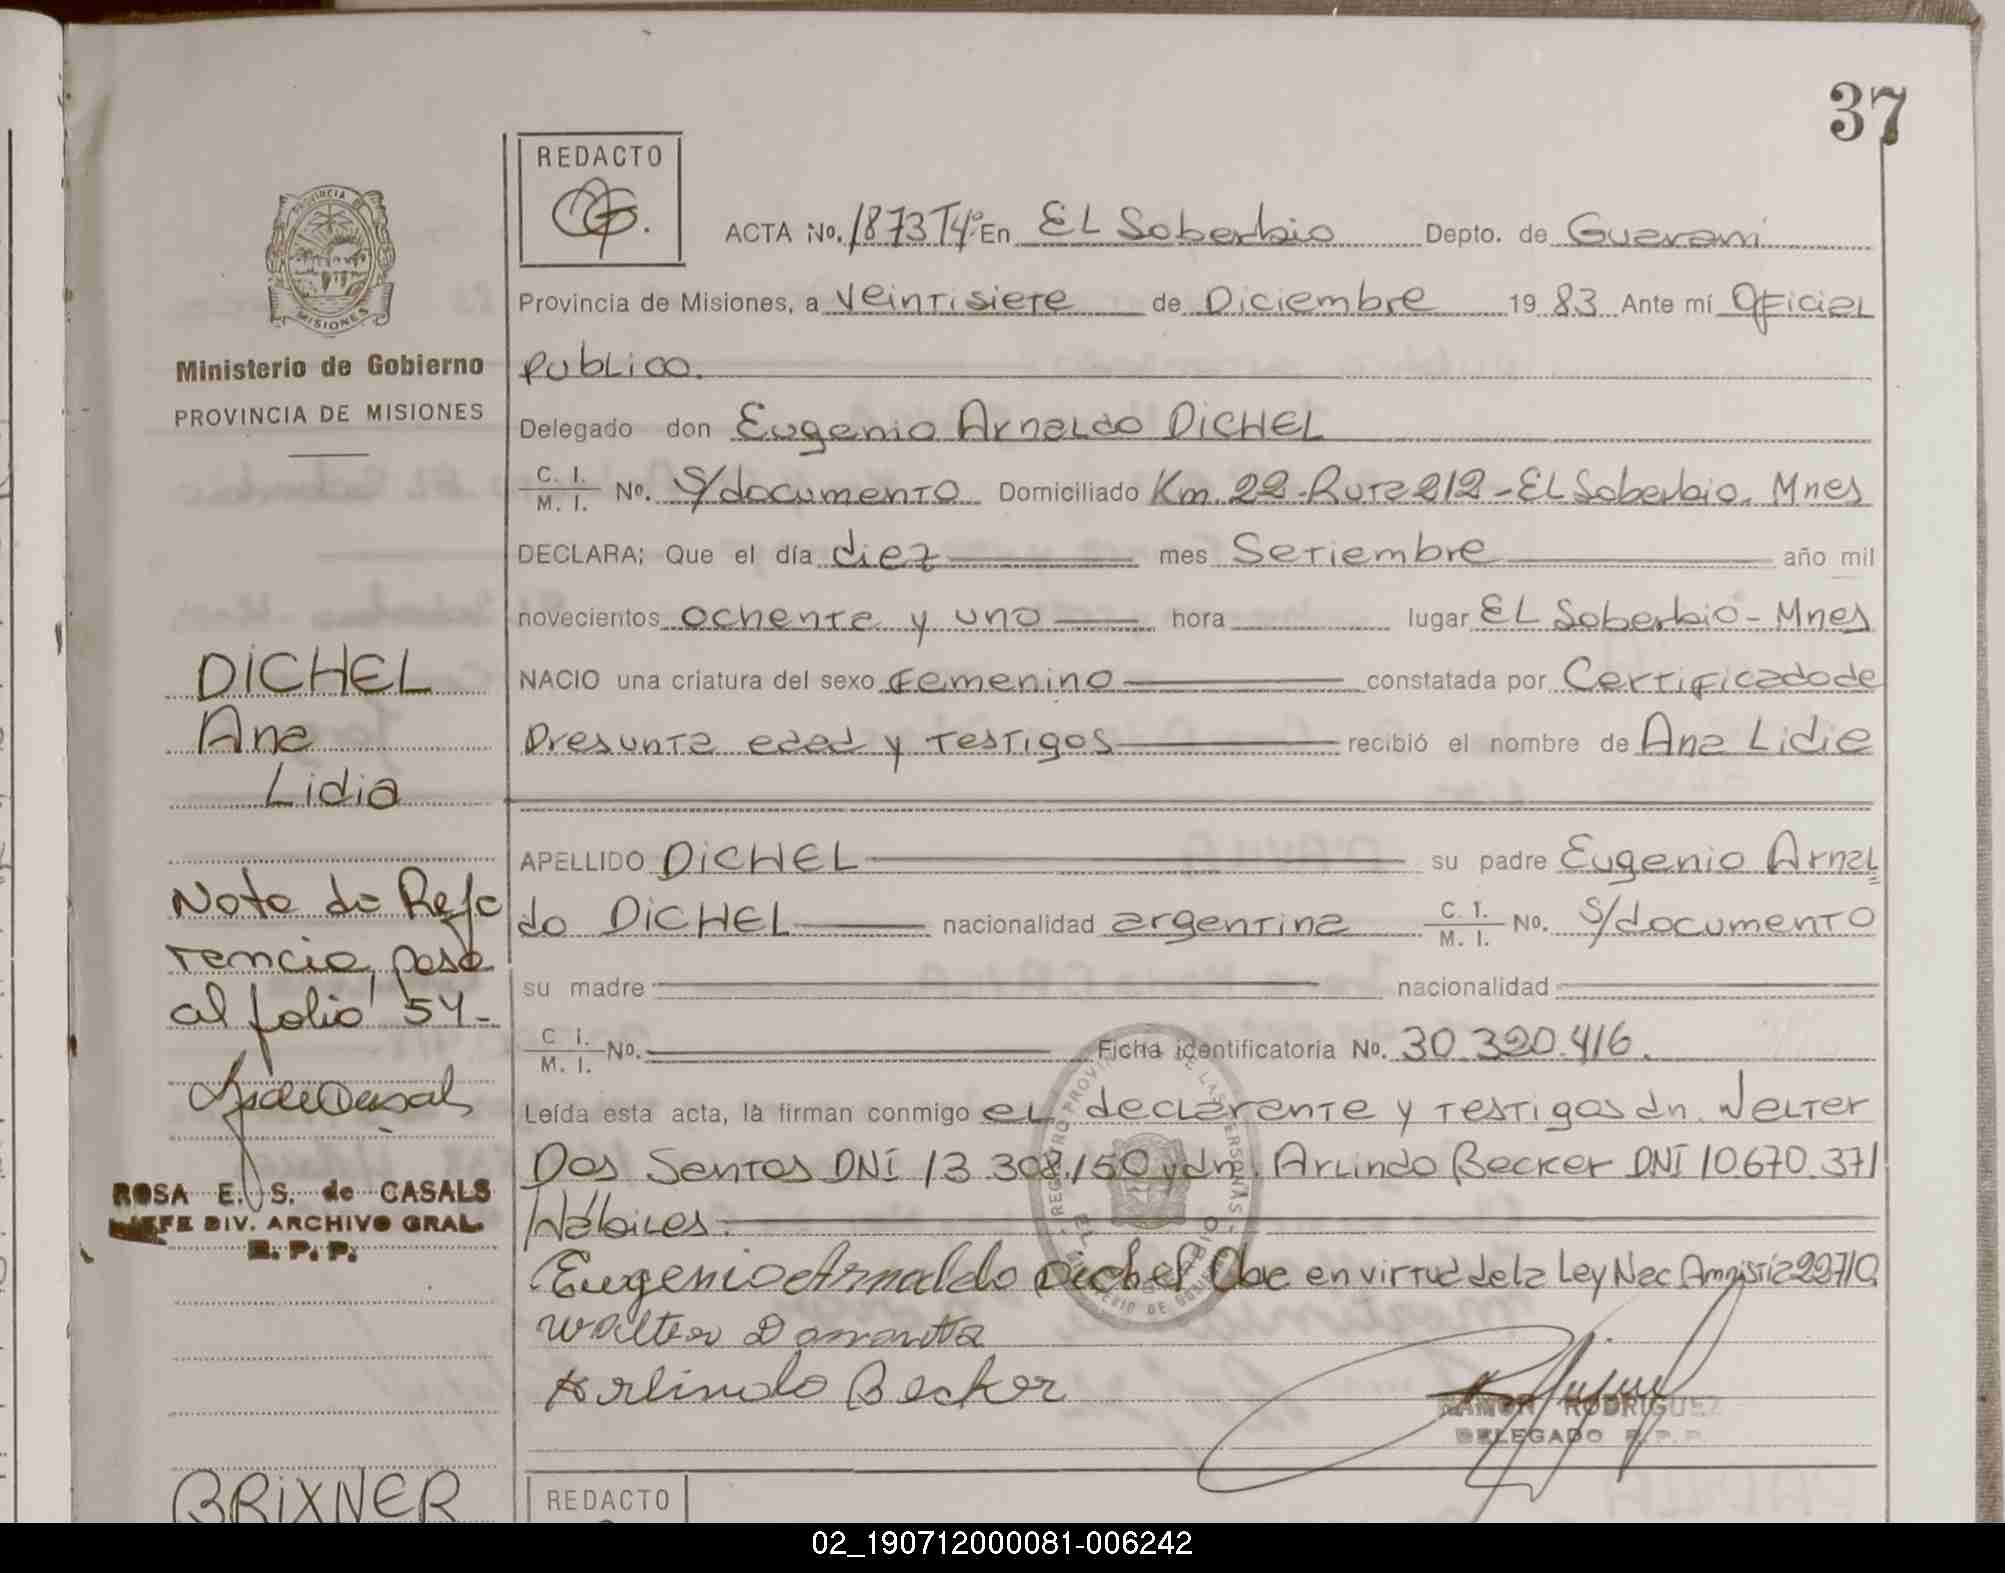 37
REDACTO
ACTA No. 1873 T4º En EL Soberbio Depto. de Guarani
PROVINCIA DE
MISIONES
Provincia de Misiones, a Veintisiete de Diciembre 19 83 Ante mí Oficial
Ministerio de Gobierno
Publico.
PROVINCIA DE MISIONES
Delegado don Eugenio Arnaldo DICHEL
C. I.
M. I. No. S/documento Domiciliado Km. 22-Ruta 212-EL Soberbio. Mnes
DECLARA; Que el día diez mes Setiembre año mil
novecientos ochenta y uno hora lugar EL Soberbio-Mnes
DICHEL
NACIO una criatura del sexo Femenino constatada por Certificado de
Ana
Presunta edad y testigos recibió el nombre de Ana Lidia
Lidia
APELLIDO DICHEL su padre Eugenio Arnal
Nota de Refe
do DICHEL nacionalidad argentina C. I.
M. I. No. S/documento
rencia, pasa
su madre nacionalidad
al folio 54-
C I.
M. I. No. Ficha identificatoria No. 30.320.416.
Leída esta acta, la firman conmigo el declarante y testigos dn. Welter
Dos Santos DNI 13.308.150 y dn. Arlindo Becker DNI 10.670.371
ROSA E. S. de CASALS
JEFE DIV. ARCHIVO GRAL.
R. P. P.
Hábiles.
Eugenio Arnaldo Dichel en virtud de la Ley Nac Amnistia 22710
Walter
Arlindo Becker
RAMON RODRIGUEZ
DELEGADO R.P.P.
BRIXNER
REDACTO
02_190712000081-006242